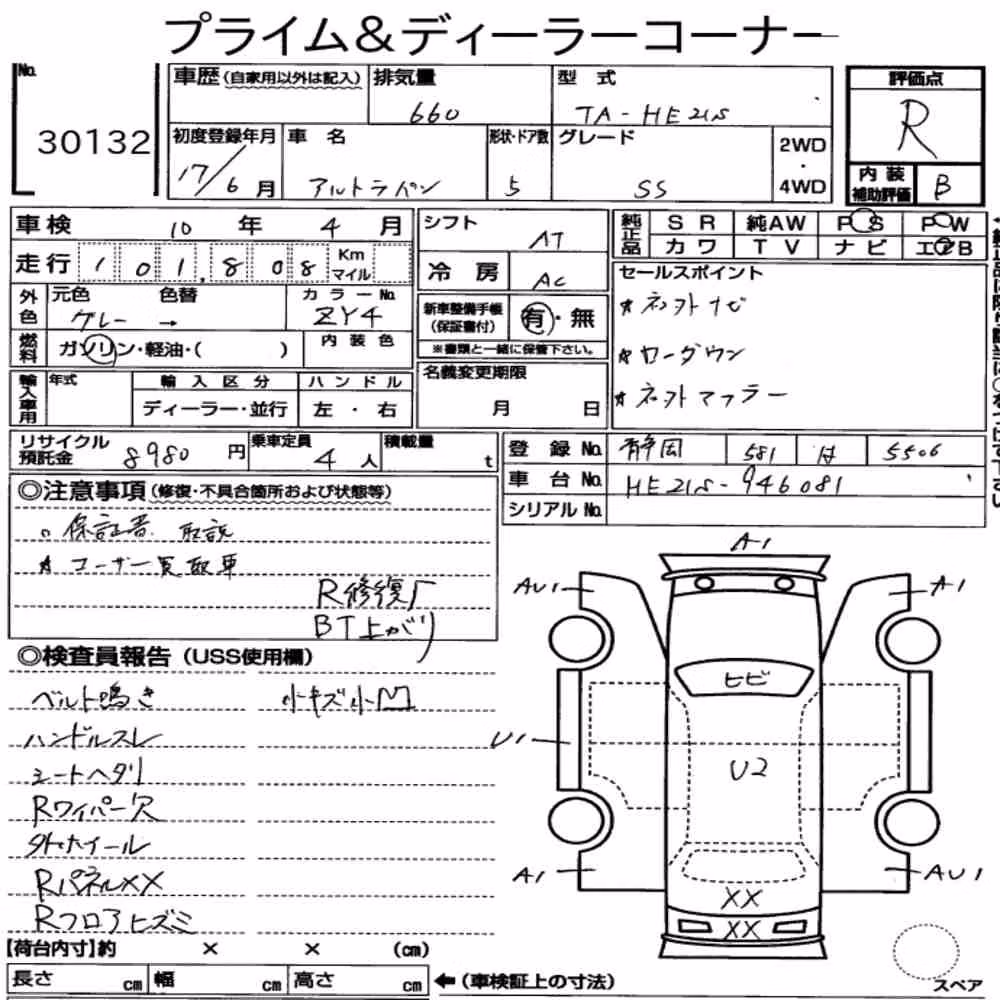 プライム&ディーラーコーナー
No.
30132
車歴(自家用以外は記入)
排気量
660
型式
TA-HE21S
評価点
R
初度登録年月
17/6月
車名
アルトラパン
形状・ドア数
5
グレード
SS
2WD
・
4WD
内装
補助評価
B
車検 10年 4月
シフト
AT
純正品
SR 純AW PS PW
カワ TV ナビ エアB
走行 101,808 Km マイル
冷房
AC
セールスポイント
★ネットナビ
★ローダウン
★ネットマフラー
外色
元色 色替
グレー →
カラーNo.
ZY4
新車整備手帳
(保証書付)
有・無
※書類と一緒に保管下さい。
燃料
ガソリン・軽油・( )
内装色
輸入車用
年式
輸入区分
ディーラー・並行
ハンドル
左・右
名義変更期限
月 日
リサイクル
預託金
8980円
乗車定員
4人
積載量
t
登録No. 静岡 581 は 5506
車台No. HE21S-946081
シリアルNo.
◎注意事項(修復・不具合箇所および状態等)
○保証書 取説
★ユーザー買取車
R修復厂
BT上がり
◎検査員報告(USS使用欄)
ベルト鳴き 小キズ小凹
ハンドルスレ
シートヘタリ
Rワイパー欠
外ホイール
RパネルXX
Rフロアヒズミ
A1
AU1
A1
ヒビ
U1
U2
A1
AU1
XX
XX
【荷台内寸】約 × × (cm)
長さ cm 幅 cm 高さ cm
←(車検証上の寸法)
スペア